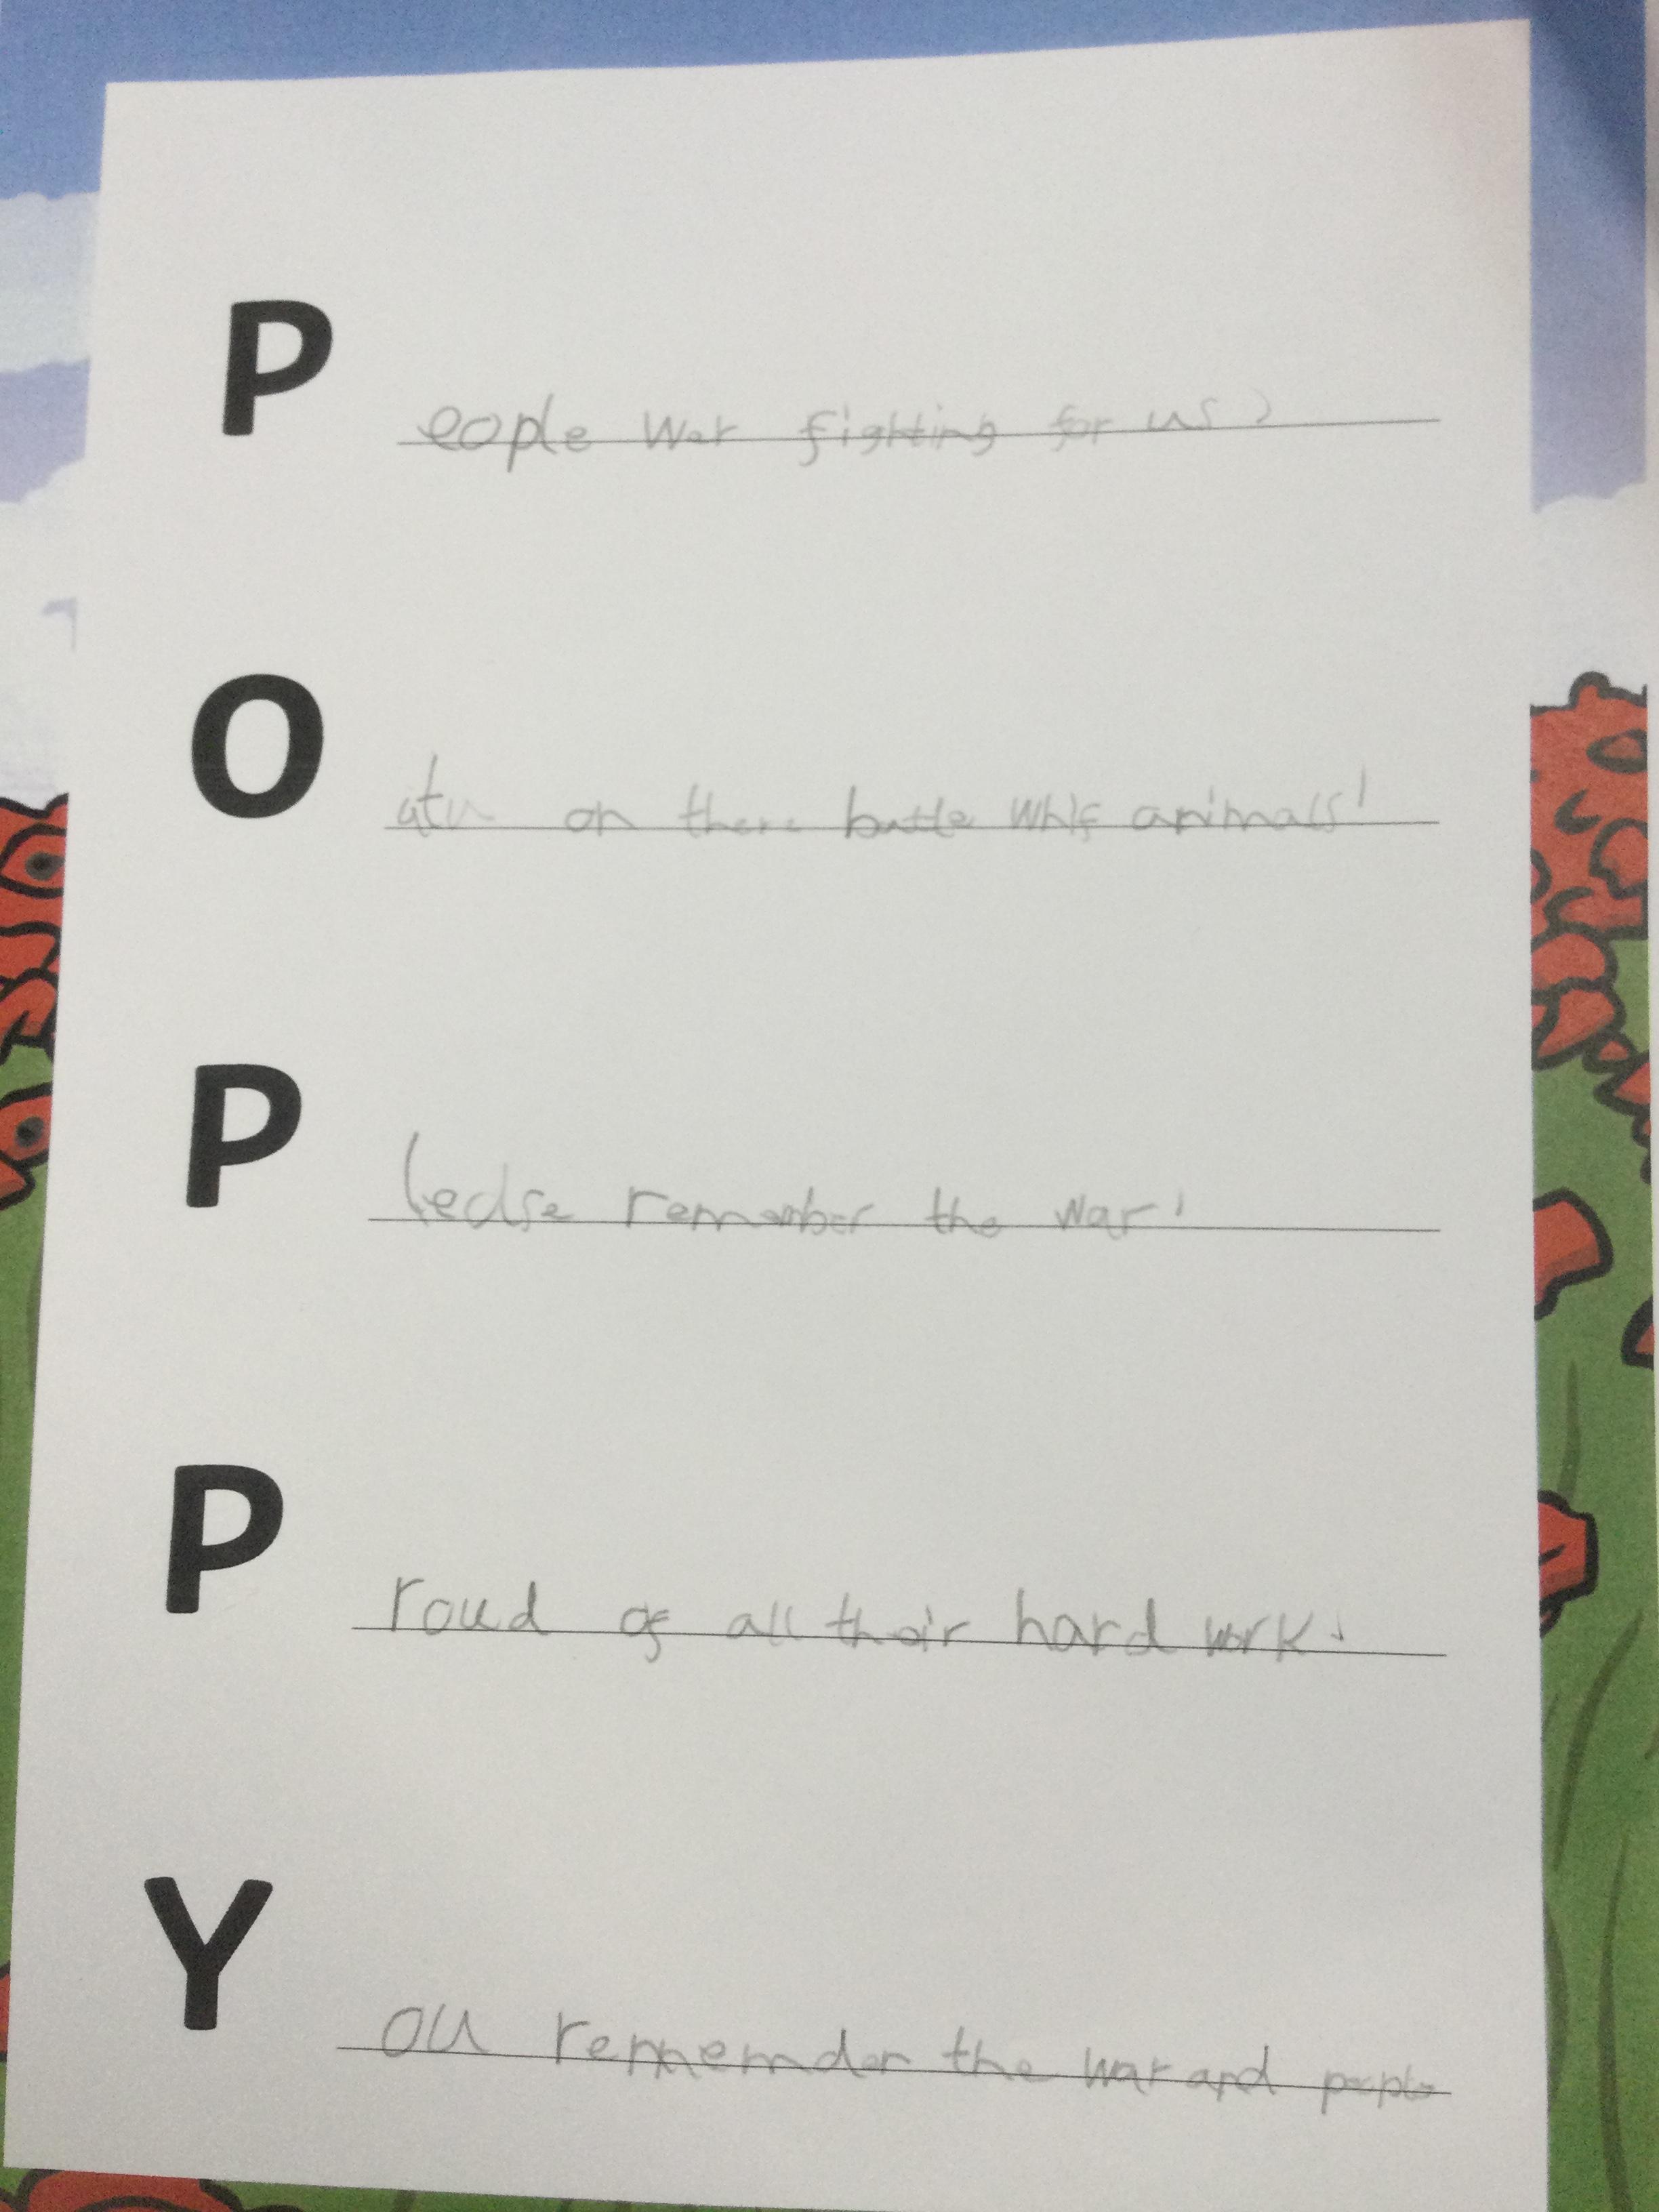 People war fighting for us
O on there battle whif animals!
Please remember the war!
Proud of all their hard work!
You rememder the war and people